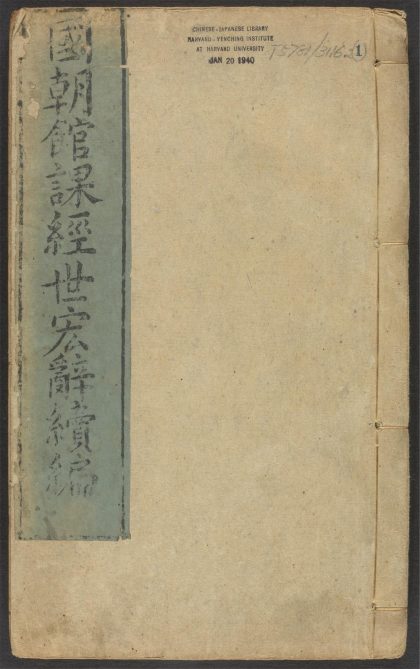 國朝館課經世宏辭續編
CHINESE-JAPANESE LIBRARY
HARVARD-YENCHING INSTITUTE
AT HARVARD UNIVERSITY
JAN 20 1940
①